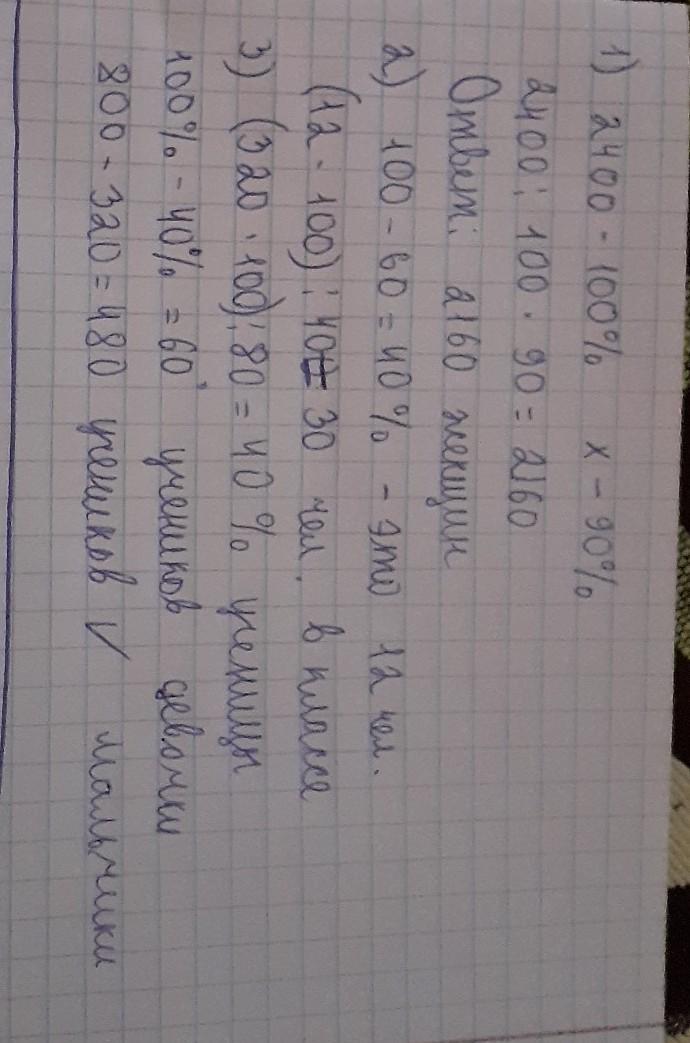 1) 2400 - 100% x - 90%
2400 : 100 · 90 = 2160
Ответ: 2160 женщин
2) 100 - 60 = 40% - это 12 чел.
(12 · 100) : 40 = 30 чел. в классе
3) (320 · 100) : 80 = 40% ученицы
100% - 40% = 60% учеников девочки
800 - 320 = 480 учеников V мальчики